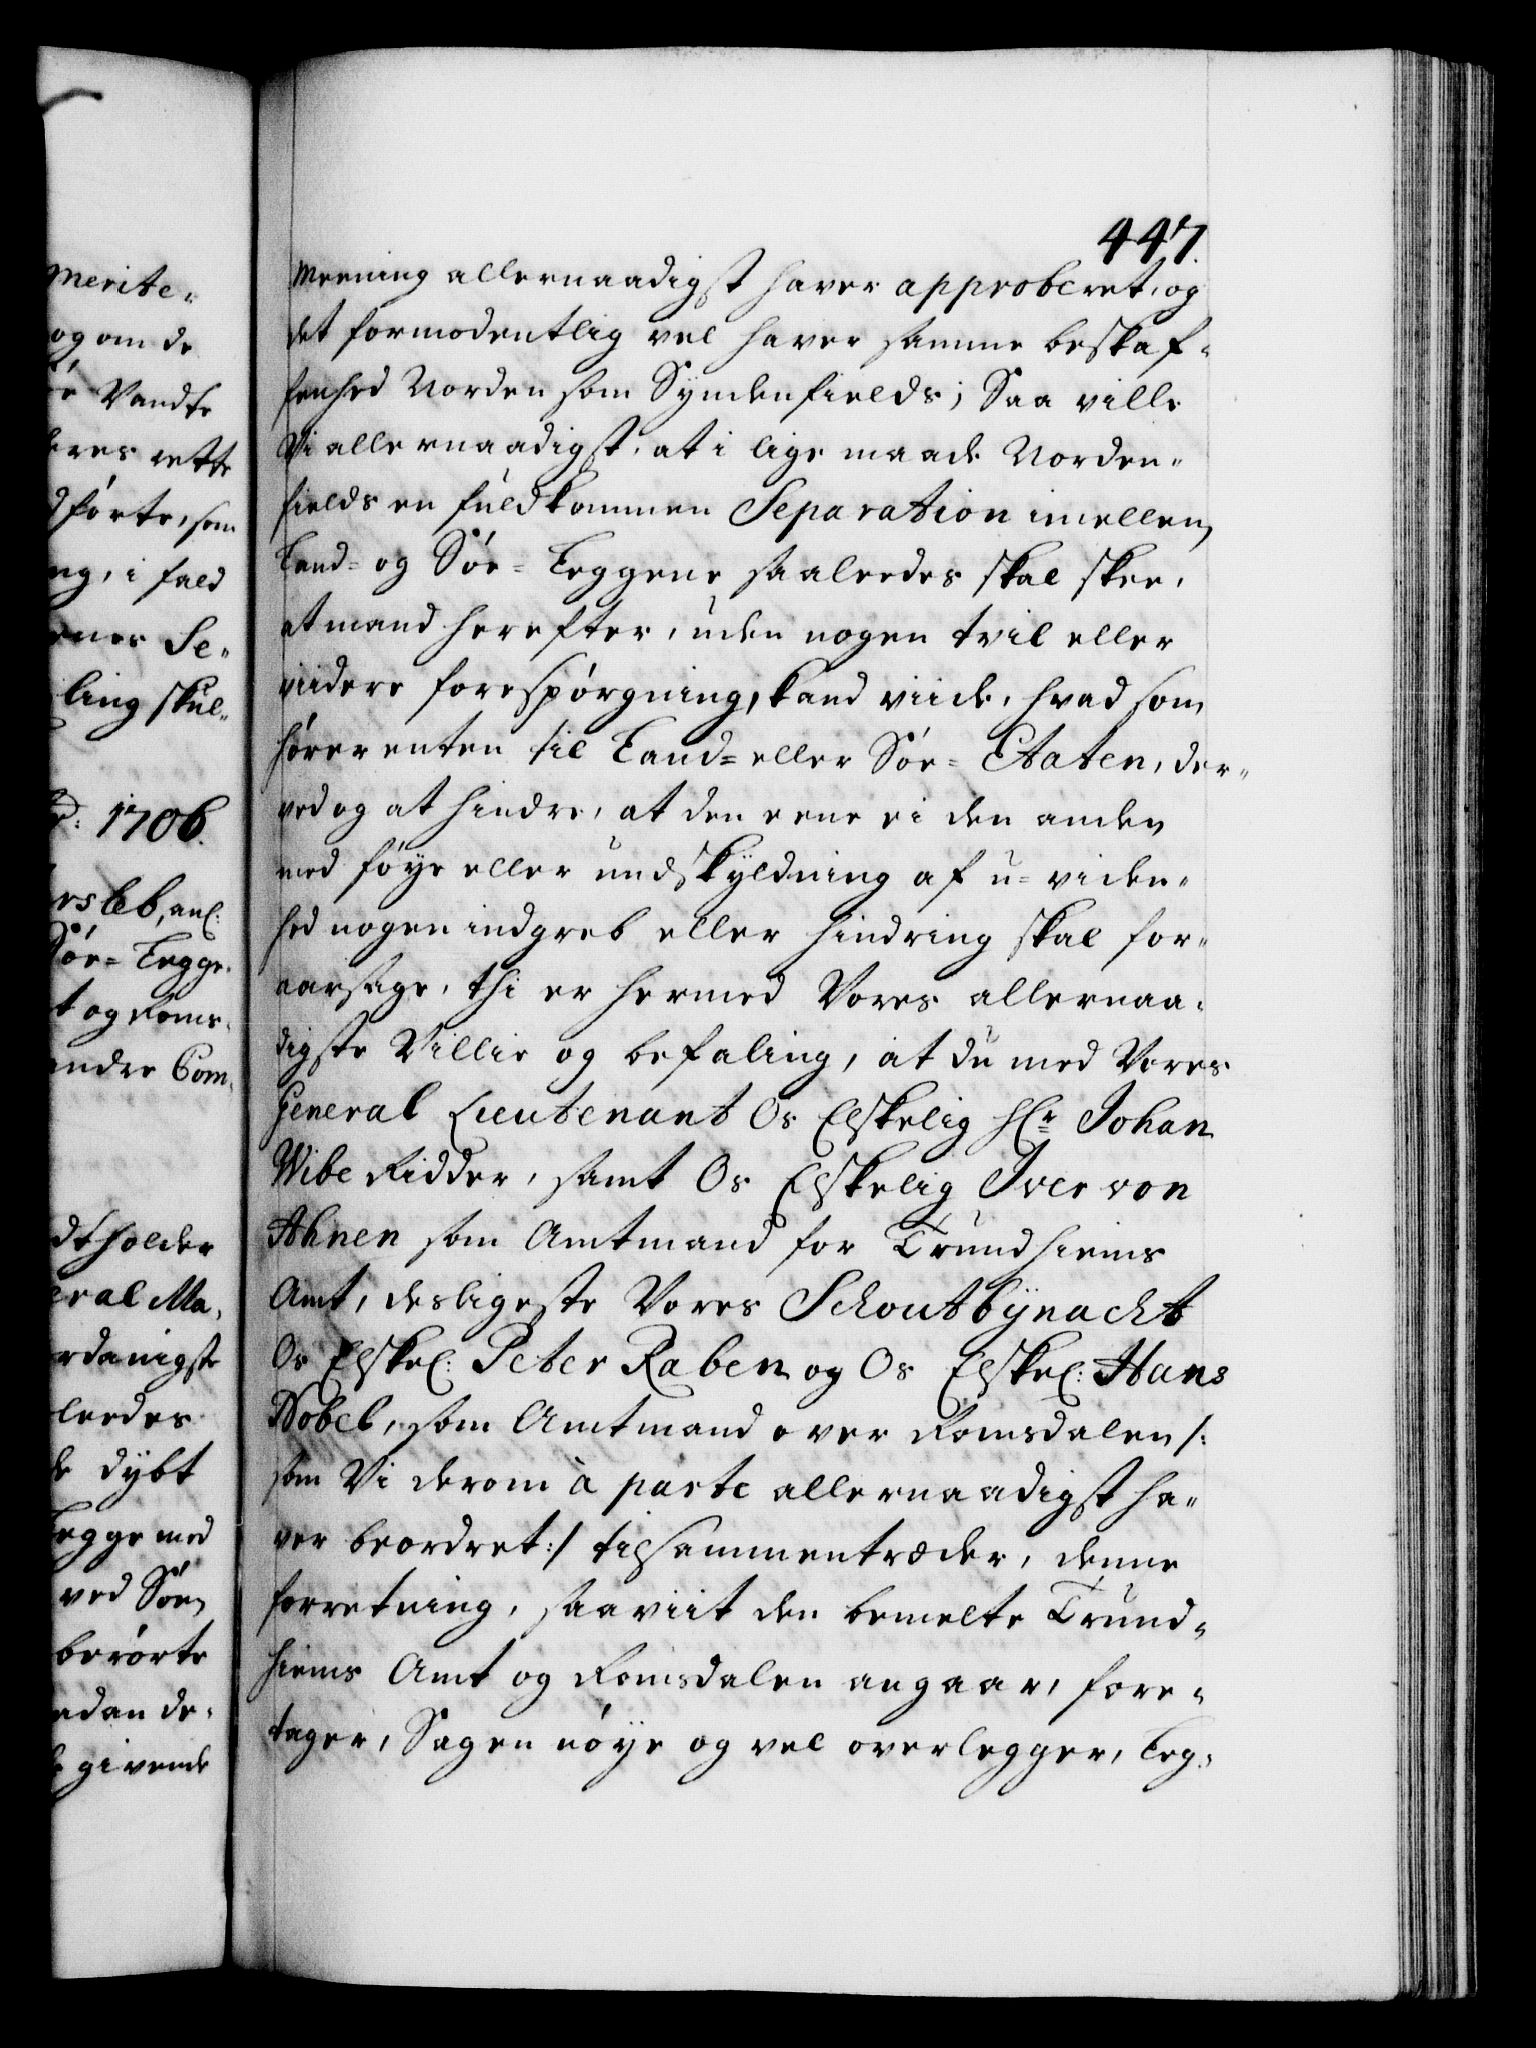 merite„
og om de
Vandte
eres rette
dførte, som
ng, i fald
ernes Se„
ling skul„
1706.
rsleb, anl:
Søe- Legge„
t og Roms„
andre Com„
dtholder
eral Ma„
rdanigste
leedes
de dybt
Legge med
ved Søen
berørte
edan de„
givende
447.
Meening allernaadigst haver approberet, og
det formodentlig vel haver samme beskaf„
fenhed Norden som Syndenfields; Saa ville
Vi allernaadigst, at i lige maade Norden„
fields en fuldkommen Separation imellem
Land= og Søe= Leggene saaleedes skal skee,
at mand herefter, uden nogen tvil eller
viidere forespørgning, kand viide, hvad som
hører enten til Land= eller Søe= Etaten, der„
ved og at hindre, at den eene ei den anden
med føye eller undskyldning af u= viden„
hed nogen indgreb eller hindring skal for„
aarsage, thi er hermed Vores allernaa„
digste Villie og befaling, at du med Vores
General Lieutenant Os Elskelig Hr Johan
Wibe Ridder, samt Os Elskelig Iver von
Ahnen som Amtmand for Trundhiems
Amt, desligeste Vores Schoutbÿnacht
Os Elskel: Peter Raben og Os Elskel: Hans
Nobel, som Amtmand over Romsdalen /:
som Vi derom à parte allernaadigst ha„
ver beordret:/ tilsammentræder, denne
forretning, saaviit den bemelte Trund„
hiems Amt og Romsdalen angaar, fore„
tager, Sagen nøye og vel overlegger, Leg„